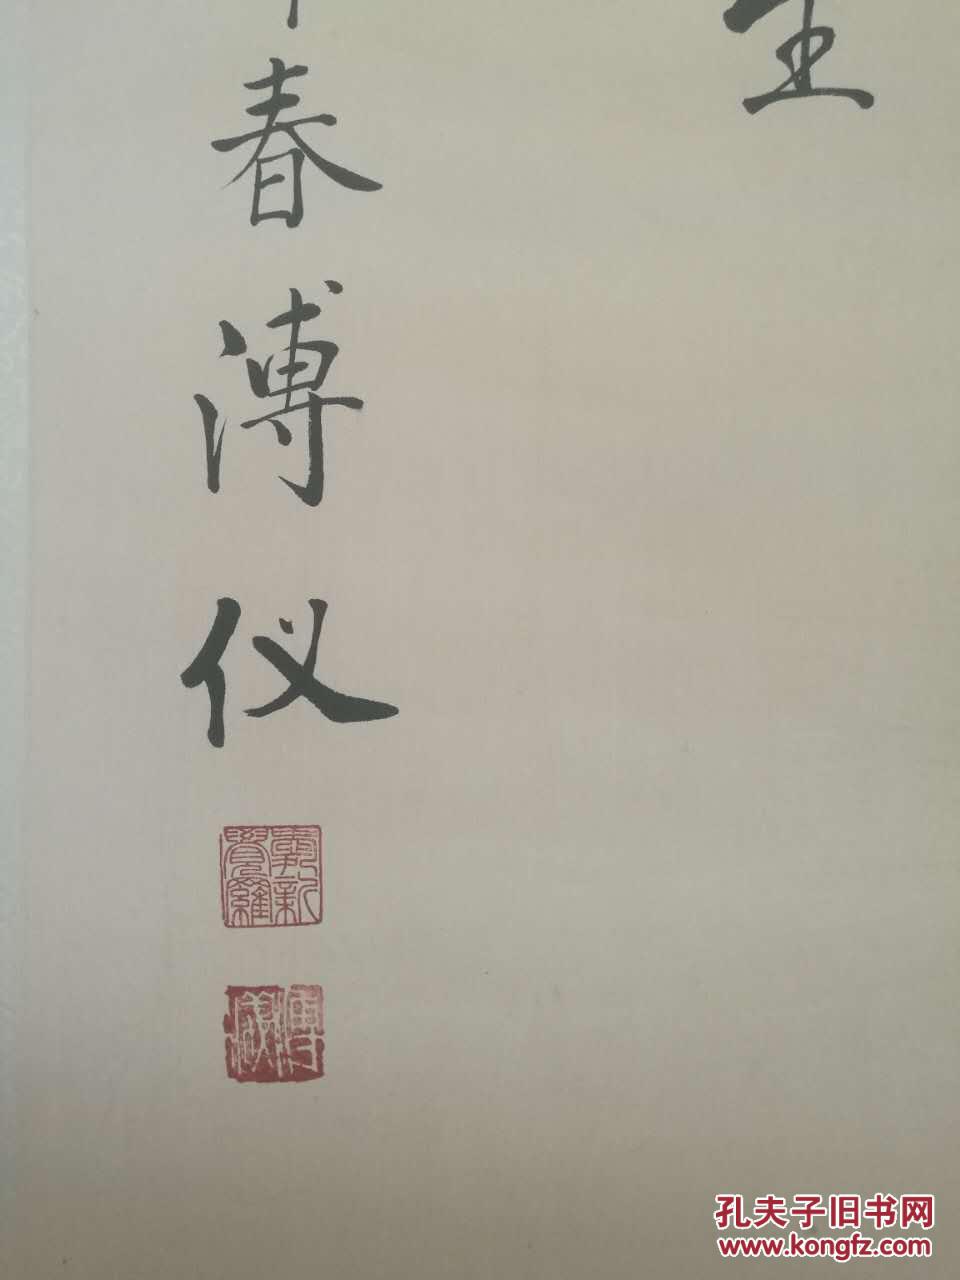 春溥仪
愛新
覺羅
溥
孔夫子旧书网
www.kongfz.com